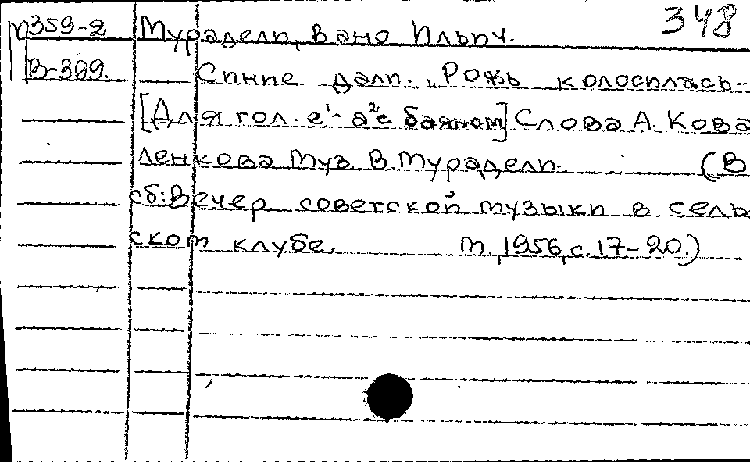 М359-2 Мурадели, Вано Ильич. 348
В-399. Синие дали.. Рожь колосилась..
[Для гол. e¹-a²с баяном] Слова А. Кова
ленкова Муз В. Мурадели. (В
сб: Вечер советской музыки в сель
ском клубе. М, 1956, с. 17-20.)